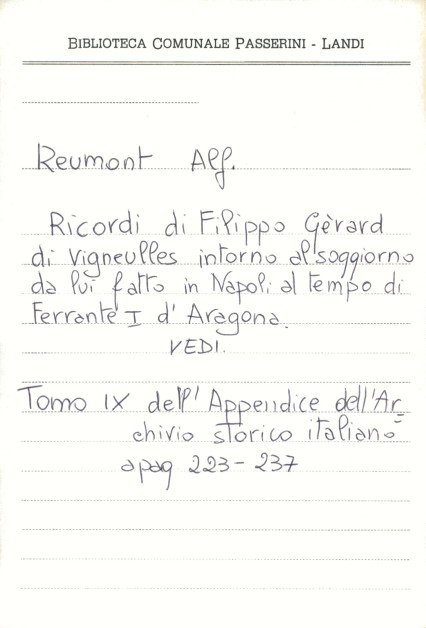 BIBLIOTECA COMUNALE PASSERINI - LANDI
Reumont Alf.
Ricordi di Filippo Gèrard
di Vigneulles intorno al soggiorno
da lui fatto in Napoli al tempo di
Ferrante I d' Aragona.
VEDI.
Tomo IX dell' Appendice dell'Ar=
chivio storico italiano
a pag 223-237